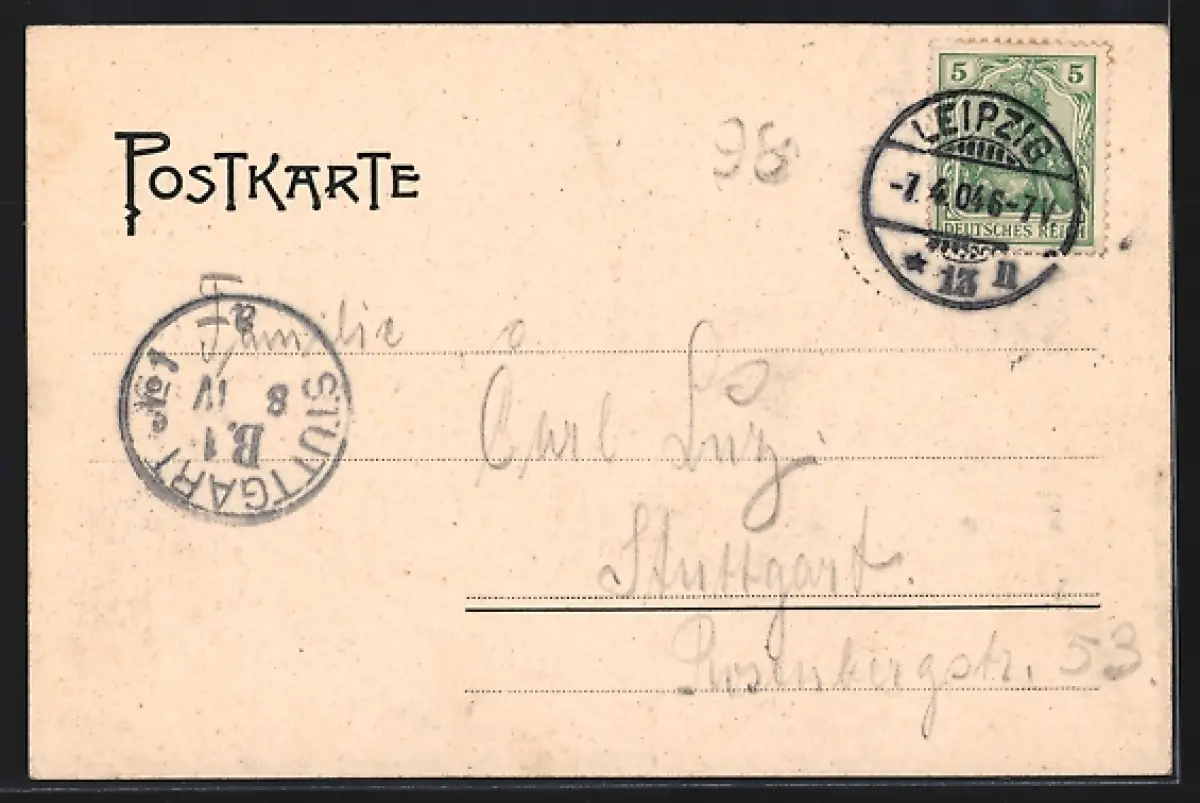 POSTKARTE
98
5 5
LEIPZIG
-7.4.04 6-7V.
* 13 II
DEUTSCHES REICH
Familie
STUTTGART No 1
a
8 IV
B. 1
Carl Luz.
Stuttgart.
Rosenbergstr. 53.